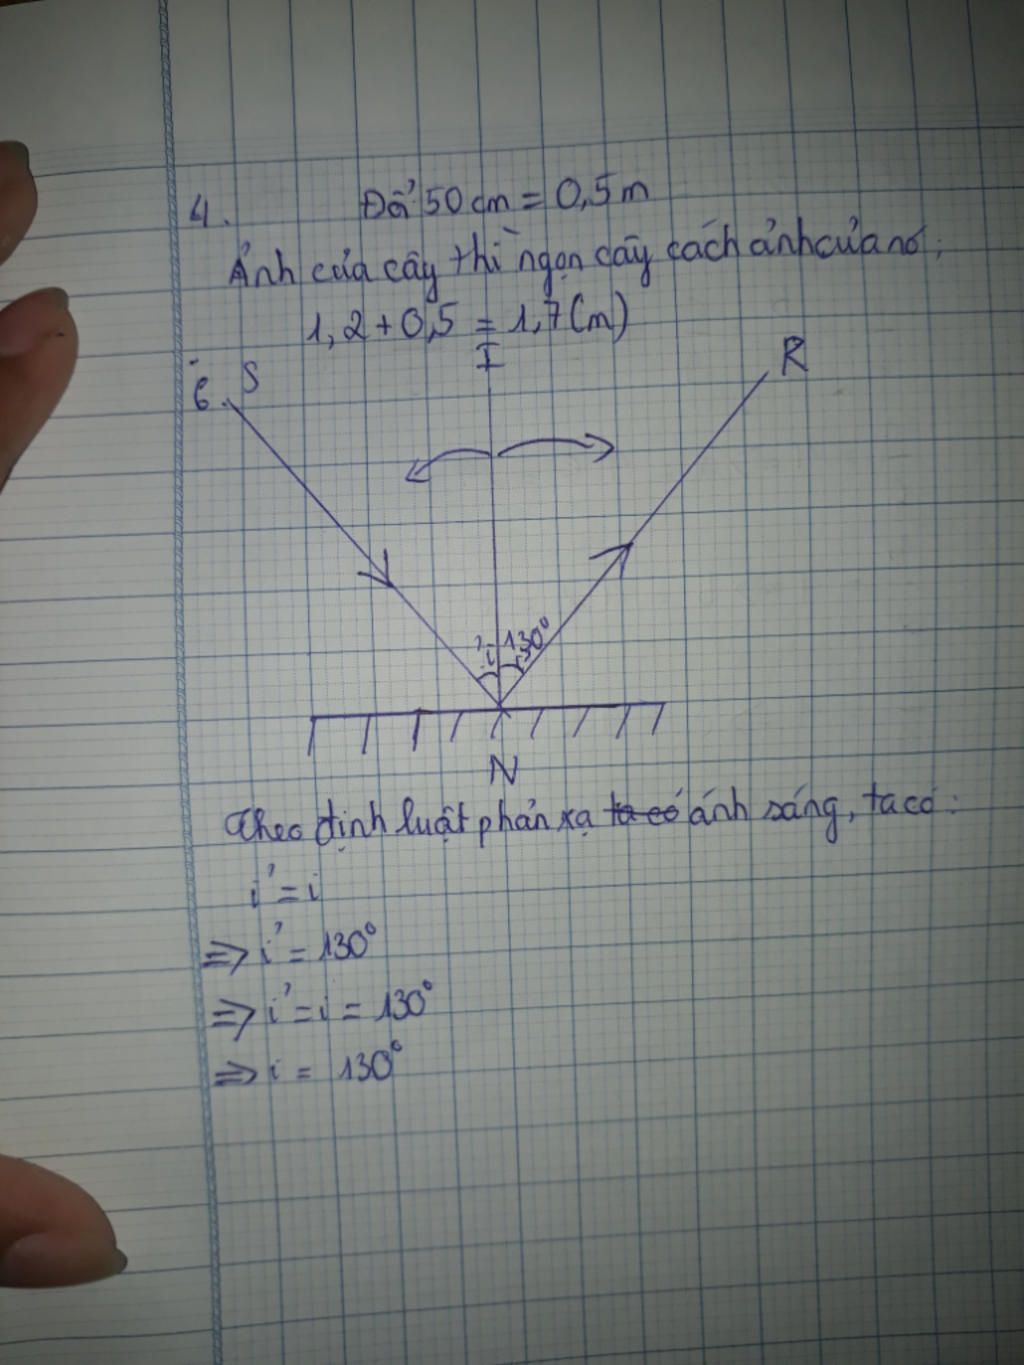 4. Đổi 50 cm = 0,5 m
Ảnh của cây thì ngọn cây cách ảnh của nó:
1,2 + 0,5 = 1,7 (m)
I
R
6. S
i' i 130°
N
Theo định luật phản xạ ta có ánh sáng, ta có:
i' = i
=> i' = 130°
=> i' = i = 130°
=> i = 130°